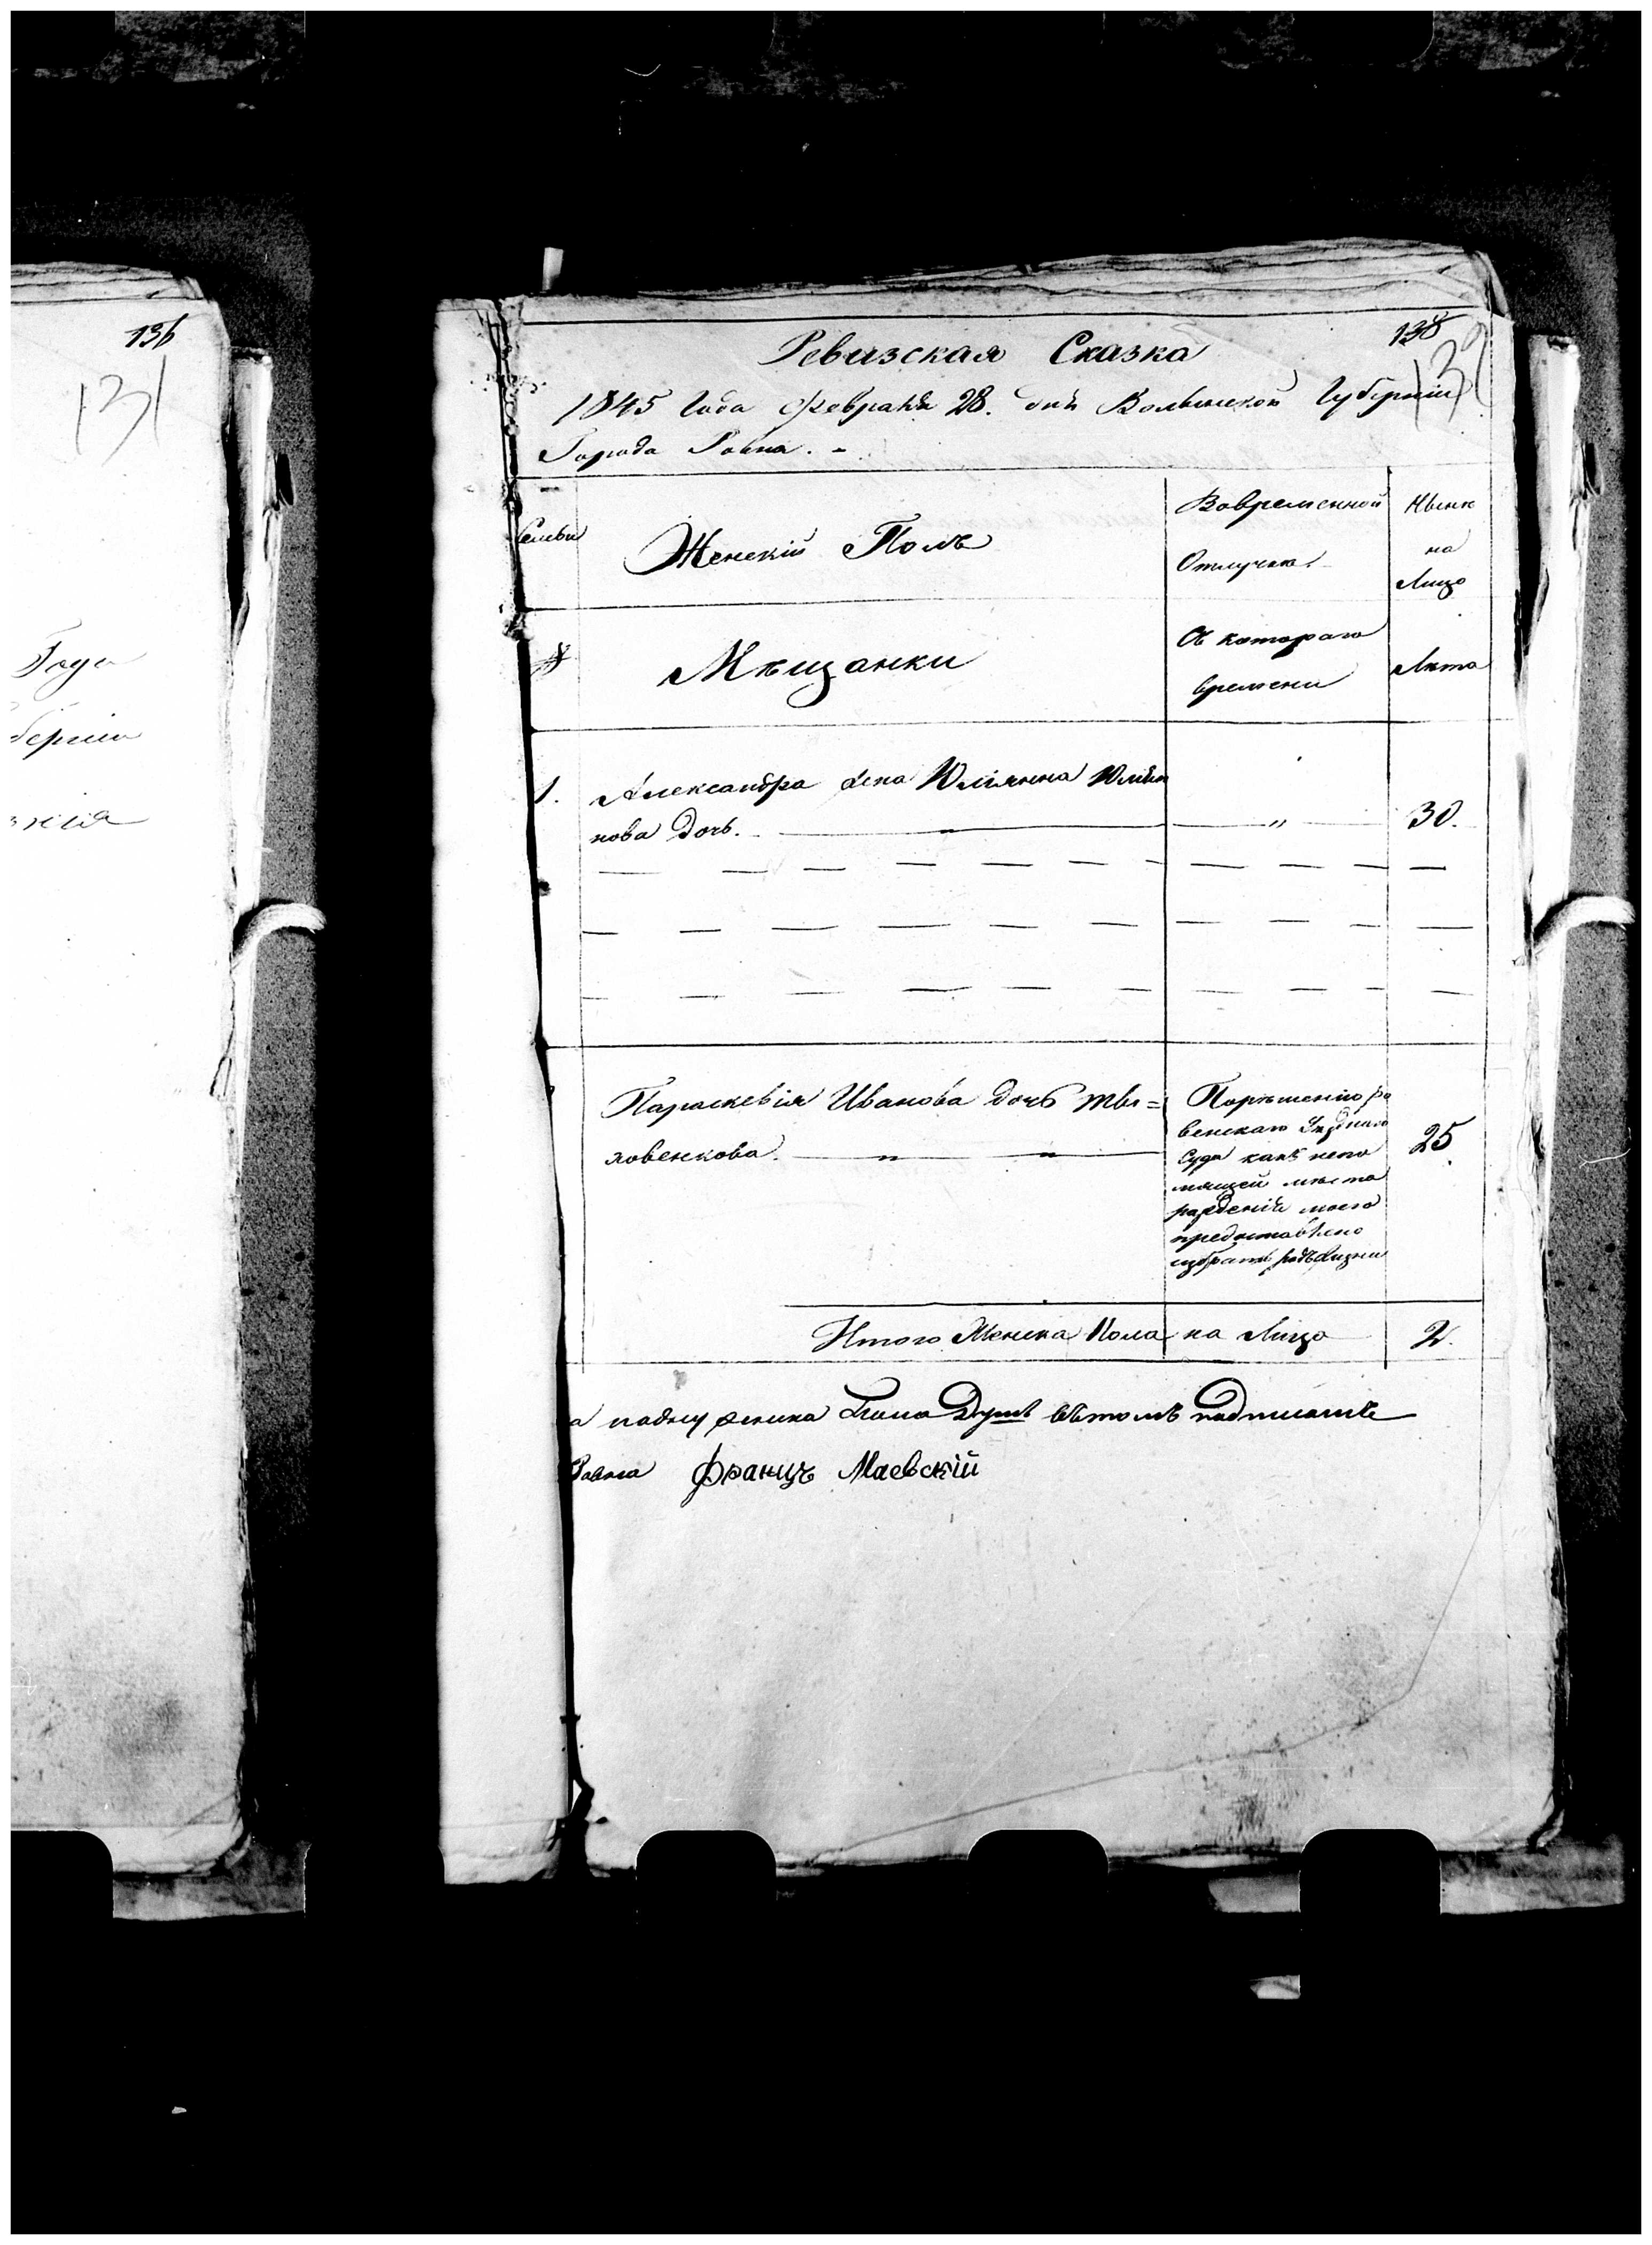 136
131
Года
берніи
138
132
Ревизская Сказка
1845 Года Февраля 28. дня Волынской Губерніи
Города Ровна. -
Семьи
Женскій Полъ
Вовременной
Отлучке.
Нынѣ
на
Лицо
№
Мѣщанки
Съ котораго
времени
Лѣта
1. Александра жена Юліянна Юліяа
нова дочь. " 30.
Параскевія Иванова дочь Тве=
ховенкова. " "
Порѣшенію Ро
венскаго Уѣзднаго
Суда какъ непо
мнящей мѣста
рожденія моего
предоставлено
избрать родъ жизни
25
Итого Женска Пола на Лицо 2.
а надну женска Пола Душъ вътомъ подписомъ
Ровна Францъ Маевскій